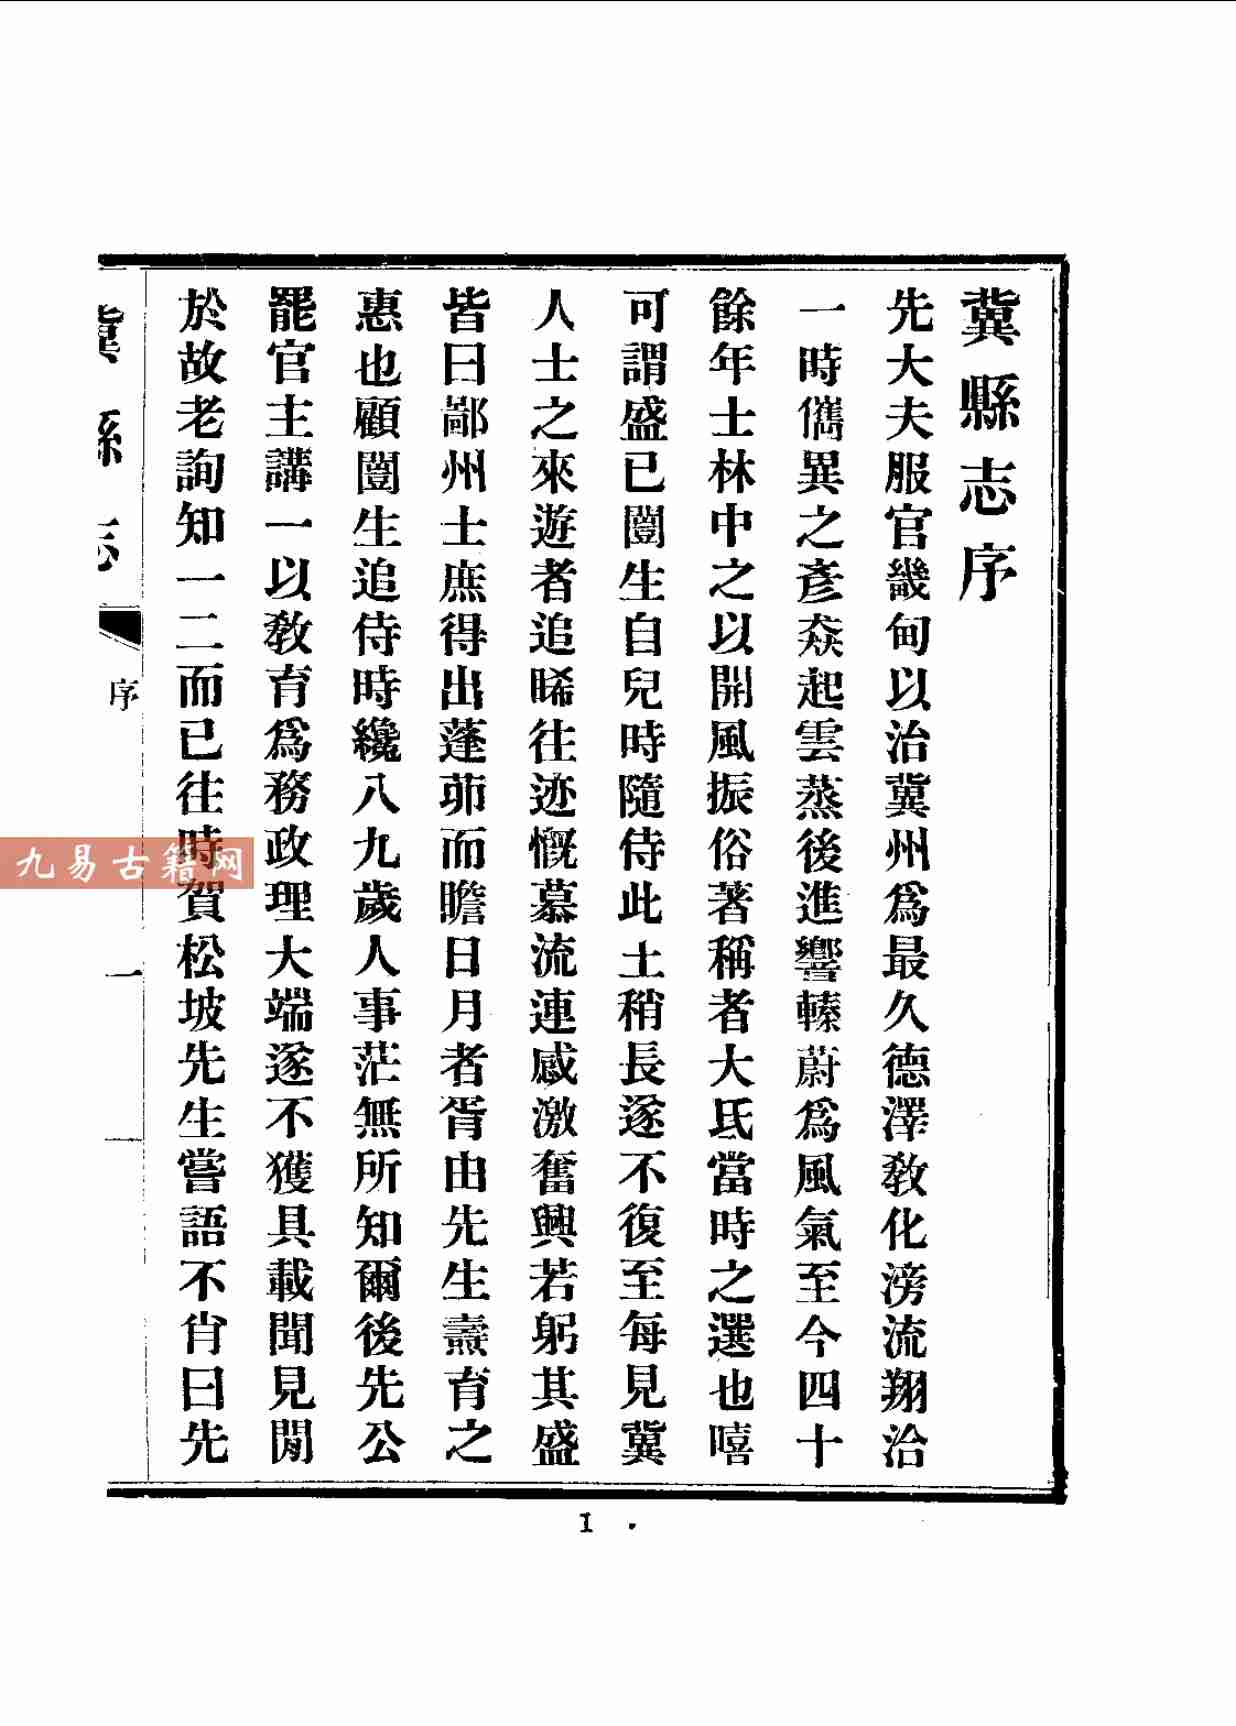 冀縣志序
先大夫服官畿甸以治冀州爲最久德澤敎化滂流翔洽
一時儁異之彥猋起雲蒸後進響轃蔚爲風氣至今四十
餘年士林中之以開風振俗著稱者大氐當時之選也嘻
可謂盛已闓生自兒時隨侍此土稍長遂不復至每見冀
人士之來遊者追晞往迹慨慕流連感激奮興若躬其盛
皆曰鄙州士庶得出蓬茆而瞻日月者胥由先生燾育之
惠也顧闓生追侍時纔八九歲人事茫無所知爾後先公
罷官主講一以敎育爲務政理大端遂不獲具載聞見閒
於故老詢知一二而已往時賀松坡先生嘗語不肖曰先
冀縣志
序
一
1
九易古籍网